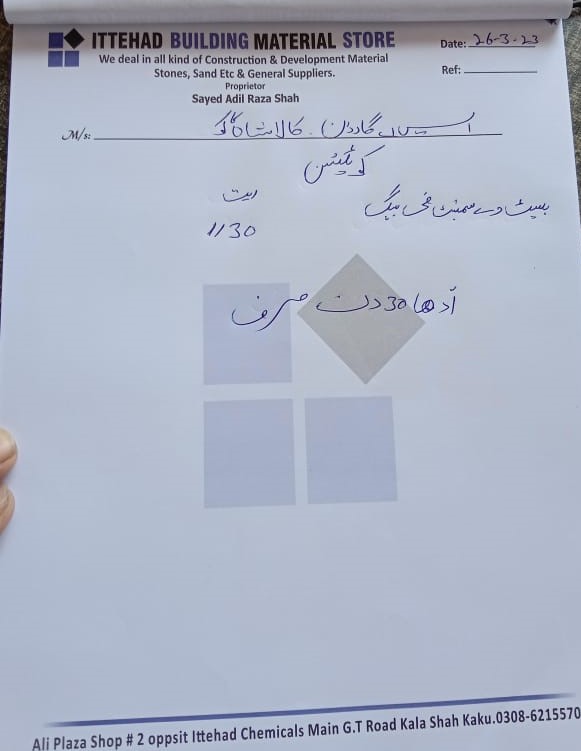 ITTEHAD BUILDING MATERIAL STORE
We deal in all kind of Construction & Development Material
Stones, Sand Etc & General Suppliers.
Proprietor
Sayed Adil Raza Shah
Date: 26-3-23
Ref:
M/s: گارڈن۔ کالا شاہ کاکو
کوٹیشن
ریٹ
بیسٹ وے سیمنٹ فی بیگ
1130
ادھار 30 دن صرف
Ali Plaza Shop # 2 oppsit Ittehad Chemicals Main G.T Road Kala Shah Kaku.0308-6215570